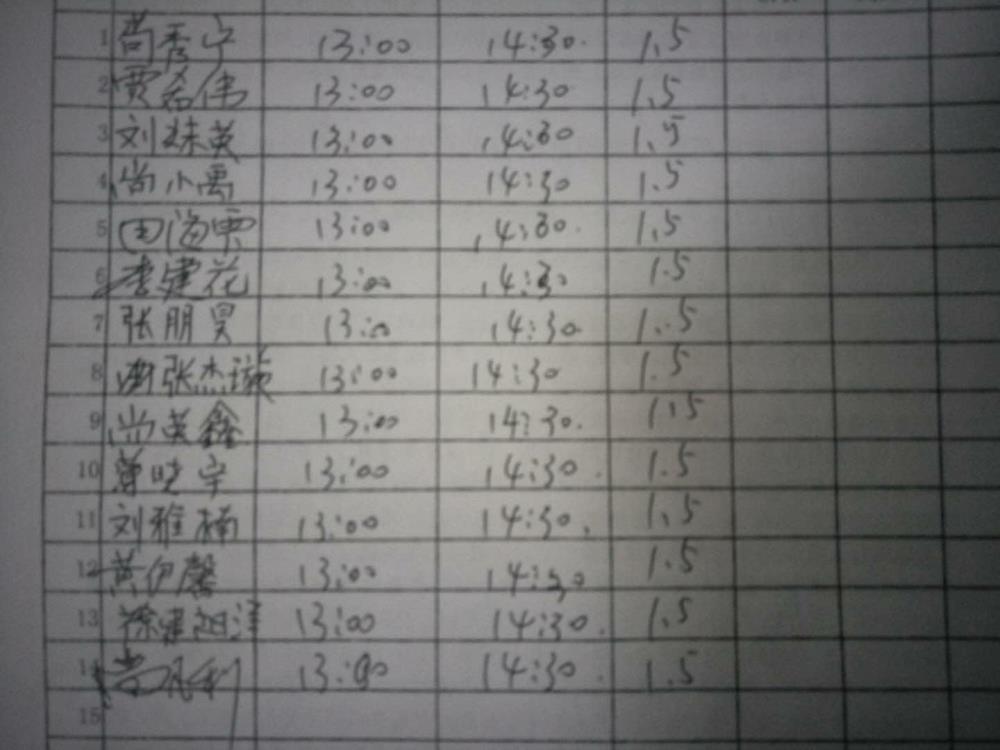 1 尚秀宁 13:00 14:30 1.5
2 贾希伟 13:00 14:30 1.5
3 刘姝英 13:00 14:30 1.5
4 尚小禹 13:00 14:30 1.5
5 田海 13:00 14:30 1.5
6 李建花 13:00 14:30 1.5
7 张朋昊 13:00 14:30 1.5
8 张杰璇 13:00 14:30 1.5
9 尚英鑫 13:00 14:30 1.5
10 晓宇 13:00 14:30 1.5
11 刘雅楠 13:00 14:30 1.5
12 黄伊馨 13:00 14:30 1.5
13 徐 洋 13:00 14:30 1.5
14 尚 利 13:00 14:30 1.5
15